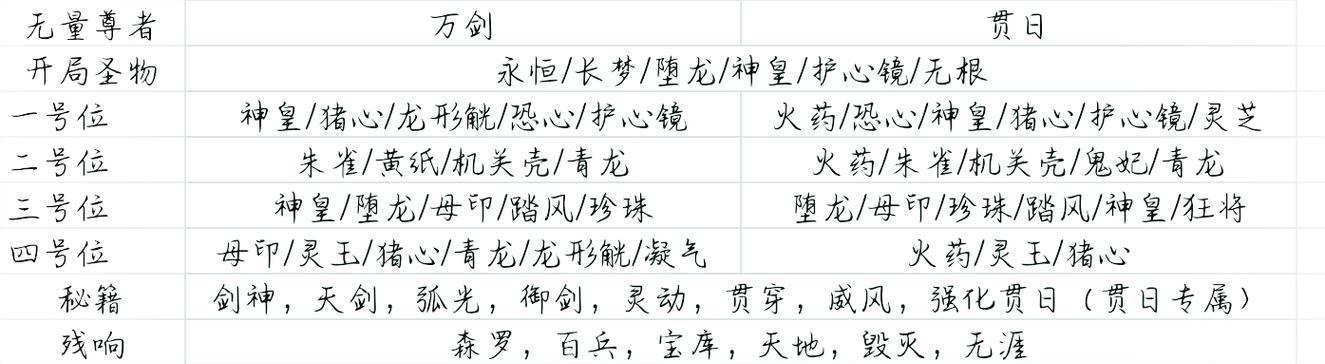 无量尊者 万剑 贯日
开局圣物 永恒/长梦/堕龙/神皇/护心镜/无根
一号位 神皇/猪心/龙形觥/恐心/护心镜 火药/恐心/神皇/猪心/护心镜/灵芝
二号位 朱雀/黄纸/机关壳/青龙 火药/朱雀/机关壳/鬼妃/青龙
三号位 神皇/堕龙/母印/踏风/珍珠 堕龙/母印/珍珠/踏风/神皇/狂将
四号位 母印/灵玉/猪心/青龙/龙形觥/凝气 火药/灵玉/猪心
秘籍 剑神，天剑，弧光，御剑，灵动，贯穿，威风，强化贯日（贯日专属）
残响 森罗，百兵，宝库，天地，毁灭，无涯